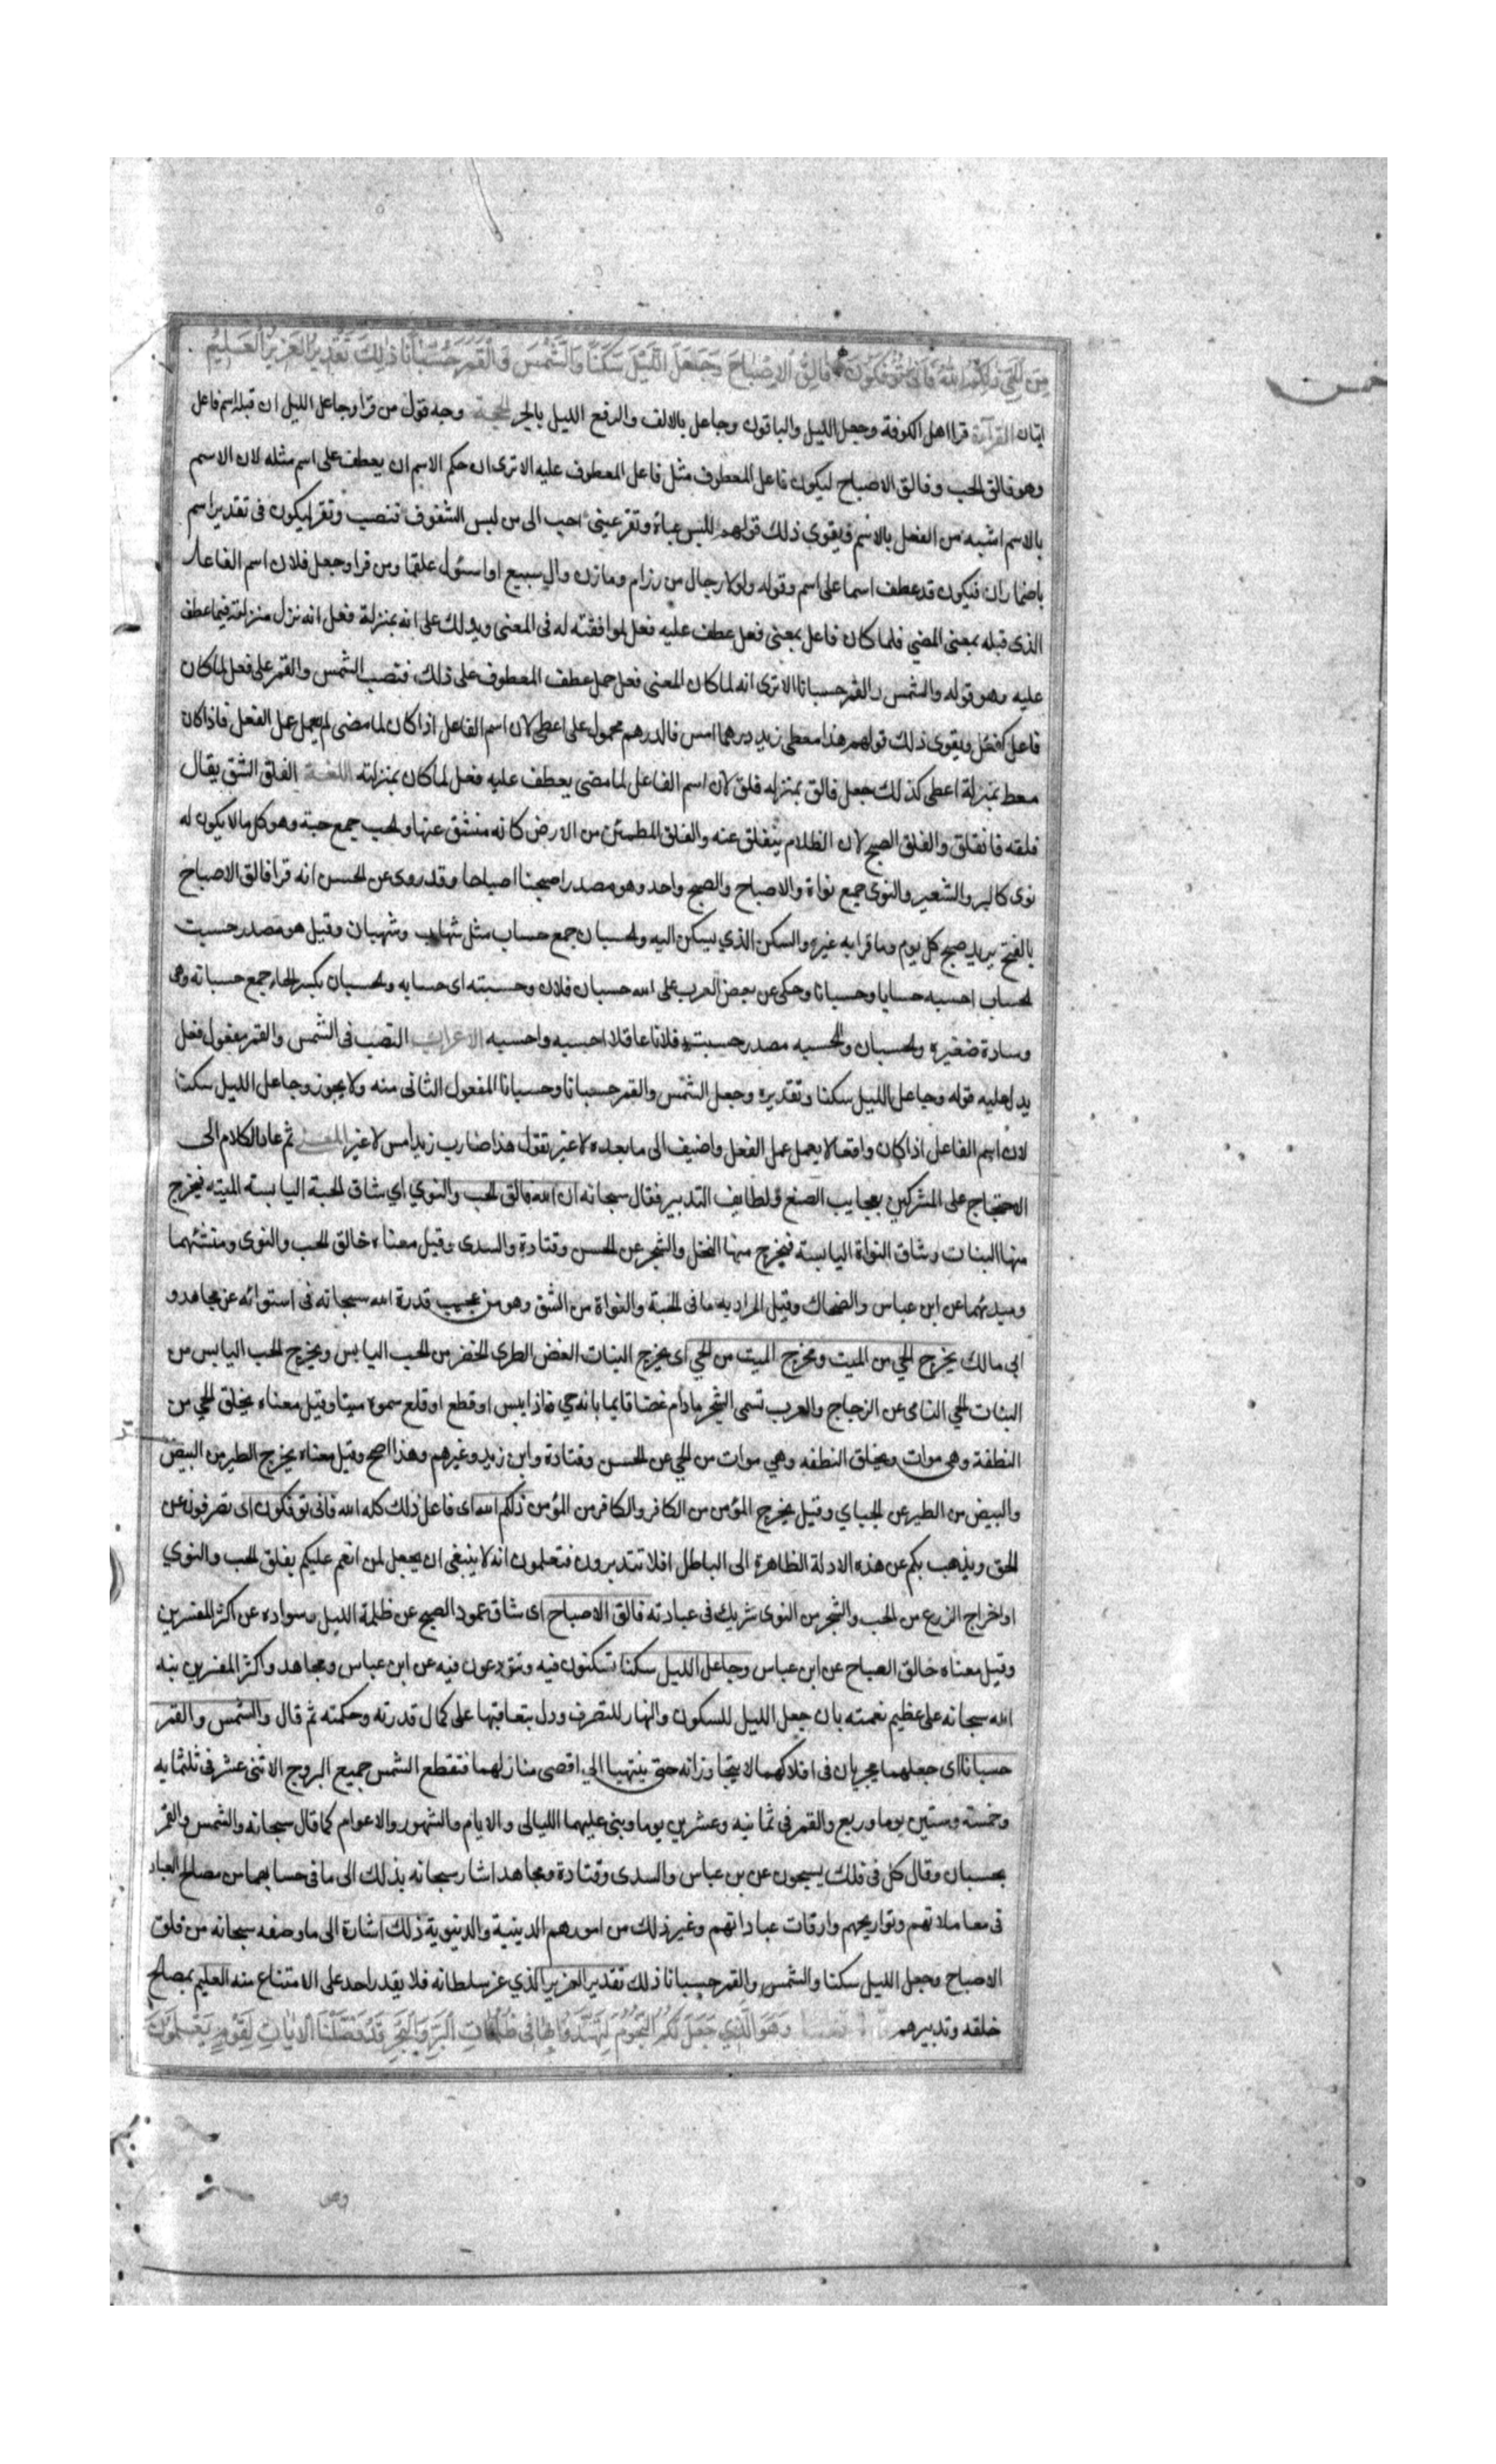 خمس
من الحي ذلكم الله فانى تؤفكون فالق الاصباح وجعل الليل سكنا والشمس والقمر حسبانا ذلك تقدير العزيز العليم
ايتان القرآءة قرا اهل الكوفة وجعل الليل والباقون وجاعل بالالف والرفع الليل بالجر الحجة وجه قول من قرا وجاعل الليل ان قبله اسم فاعل
وهو فالق الحب وفالق الاصباح ليكون فاعل المعطوف مثل فاعل المعطوف عليه الا ترى ان حكم الاسم ان يعطف على اسم مثله لان الاسم
بالاسم اشبه من الفعل بالاسم ويقوي ذلك قولهم للبس عباة وتقر عيني احب الى من لبس الشفوف فنصب وتقر ليكون فى تقدير اسم
باضمار ان فيكون قد عطف اسما على اسم وقوله ولولا رجال من رزام ومازن وال سبيع او اسئول علقما ومن قرا وجعل فلان اسم الفاعل
الذى قبله بمعنى المضي فلما كان فاعل بمعنى فعل عطف عليه فعل لموافقته له فى المعنى ويدلك على انه بمنزلة فعل انه نزل منزلته فيما عطف
عليه وهو قوله والشمس والقمر حسبانا الا ترى انه لما كان المعنى فعل حمل عطف المعطوف على ذلك فنصب الشمس والقمر على فعل لما كان
فاعل كفعل ويقوى ذلك قولهم هذا معطى زيد درهما امس فالدرهم محمول على اعطى لان اسم الفاعل اذا كان لما مضى لم يعمل عمل الفعل فاذا كان
معط بمنزلة اعطى كذلك جعل فالق بمنزله فلق لان اسم الفاعل لما مضى يعطف عليه فعل لما كان بمنزلته اللغة الفلق الشق يقال
فلقه فانفلق والفلق الصبح لان الظلام ينفلق عنه والفلق المطمئن من الارض كانه منشق عنها والحب جمع حبة وهو كل ما لا يكون له
نوى كالبر والشعير والنوى جمع نواة والاصباح والصبح واحد وهو مصدر اصبحنا اصباحا وقد روى عن الحسن انه قرا فالق الاصباح
بالفتح يريد صبح كل يوم وما قرا به غيره والسكن الذي يسكن اليه والحسبان جمع حساب مثل شهاب وشهبان وقيل هو مصدر حسبت
الحساب احسبه حسابا وحسبانا وحكى عن بعض العرب على الله حسبان فلان وحسبته اى حسابه والحسبان بكسر الحاء جمع حسبانه وهى
وسادة صغيره والحسبان والمحسبه مصدر حسبت فلانا عاقلا احسبه واحسبه الاعراب النصب فى الشمس والقمر مفعول فعل
يدل عليه قوله وجاعل الليل سكنا وتقديره وجعل الشمس والقمر حسبانا وحسبانا المفعول الثانى منه ولا يجوز وجاعل الليل سكنا
لان اسم الفاعل اذا كان واقعا لا يعمل عمل الفعل واضيف الى ما بعده لا غير تقول هذا ضارب زيد امس لا غير المعنى ثم عاد الكلام الى
الاحتجاج على المشركين بعجايب الصنع ولطايف التدبير فقال سبحانه ان الله فالق الحب والنوي اي شاق الحبة اليابسة الميته فيخرج
منها النبات وشاق النواة اليابسة فيخرج منها النخل والشجر عن الحسن وقتادة والسدى وقيل معناه خالق الحب والنوى ومنشئهما
ومبدئهما عن ابن عباس والضحاك وقيل المراد به ما فى الحبة والنواة من الشق وهو من عجيب قدرة الله سبحانه فى استوائه عن مجاهد و
ابى مالك يخرج الحي من الميت ومخرج الميت من الحي اى يخرج النبات الغض الطرى الخضر من الحب اليابس ويخرج الحب اليابس من
النبات الحي النامى عن الزجاج والعرب تسمى الشجر مادام غضا قايما بانه حي فاذا يبس او قطع او قلع سموه ميتا وقيل معناه يخلق الحي من
النطفة وهى موات ويخلق النطفه وهي موات من الحي عن الحسن وقتادة وابن زيد وغيرهم وهذا اصح وقيل معناه يخرج الطير من البيض
والبيض من الطير عن الجباي وقيل يخرج المؤمن من الكافر والكافر من المؤمن ذلكم الله اى فاعل ذلك كله الله فانى تؤفكون اى تصرفون عن
الحق ويذهب بكم عن هذه الادلة الظاهرة الى الباطل افلا تتدبرون فتعلمون انه لا ينبغى ان يجعل لمن انعم عليكم بفلق الحب والنوي
واخراج الزرع من الحب والشجر من النوى شريك فى عبادته فالق الاصباح اى شاق عمود الصبح عن ظلمة الليل وسواده عن اكثر المفسرين
وقيل معناه خالق الصباح عن ابن عباس وجاعل الليل سكنا تسكنون فيه وتتودعون فيه عن ابن عباس ومجاهد واكثر المفسرين نبه
الله سبحانه على عظيم نعمته بان جعل الليل للسكون والنهار للتصرف ودل بتعاقبها على كمال قدرته وحكمته ثم قال والشمس والقمر
حسبانا اى جعلهما يجريان فى افلاكهما لا يتجاوزانه حتى ينتهيا الي اقصى منازلهما فتقطع الشمس جميع البروج الاثنى عشر فى ثلثمايه
وخمسة وستين يوما وربع والقمر فى ثمانيه وعشرين يوما وبنى عليهما الليالى والايام والشهور والاعوام كما قال سبحانه والشمس والقمر
بحسبان وقال كل فى فلك يسبحون عن بن عباس والسدى وقتادة ومجاهد اشار سبحانه بذلك الى ما فى حسابهما من مصالح العباد
فى معاملاتهم وتواريخهم واوقات عباداتهم وغير ذلك من امورهم الدينية والدنيوية ذلك اشارة الى ما وصفه سبحانه من فلق
الاصباح وجعل الليل سكنا والشمس والقمر حسبانا ذلك تقدير العزيز الذي عز سلطانه فلا يقدر احد على الامتناع منه العليم بمصالح
خلقه وتدبيرهم وهو الذي جعل لكم النجوم لتهتدوا بها فى ظلمات البر والبحر قد فصلنا الايات لقوم يعلمون